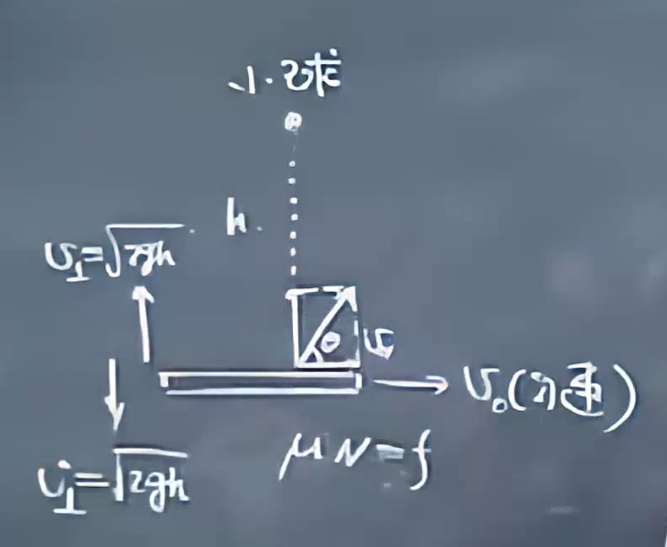 小球
h.
v⊥=√2gh
θ
v
v₀(匀速)
v⊥=√2gh
μN=f